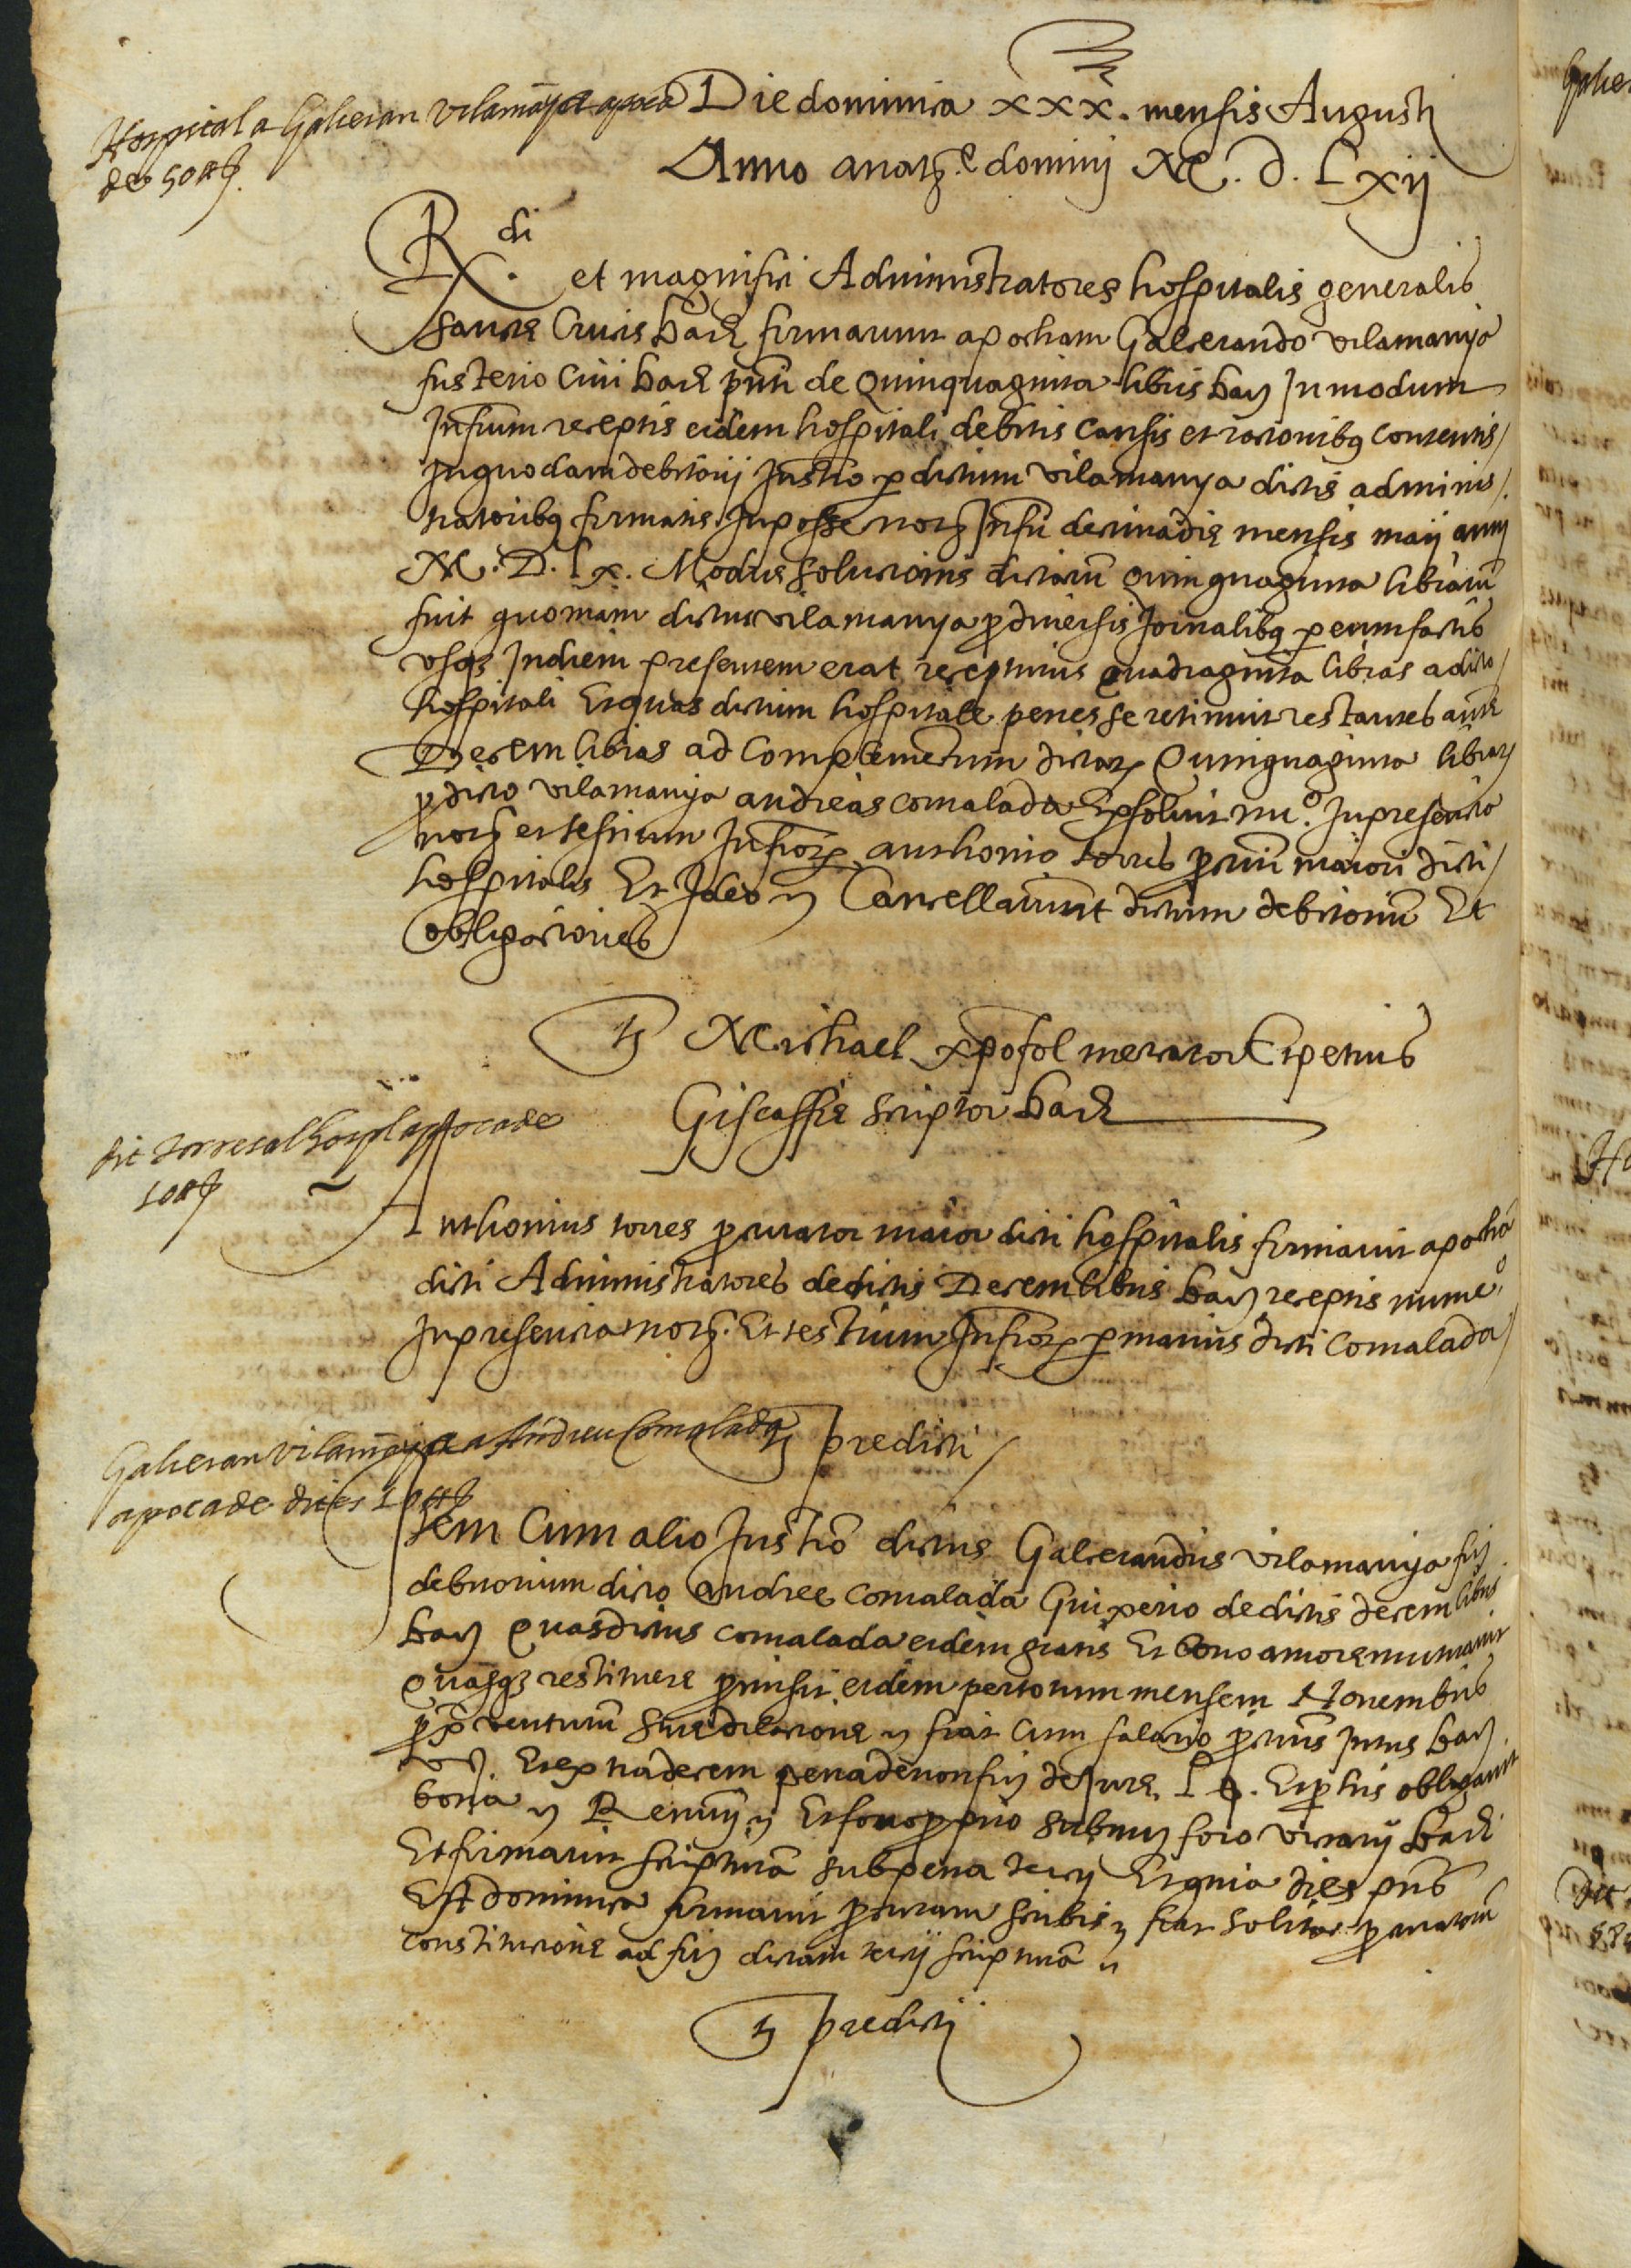 Hospital a Galceran Vilamanya apoca
de 50 ₶
Die dominica xxx. mensis Augusti
Anno a natte domini M. d. Lxij
Rdi. et magnifici Administratores hospitalis generalis
sancte Crucis barne firmarunt apocham Galcerando vilamanya
fusterio Civi barne pnti de Quinquaginta libris barn In modum
Infrum receptis eidem hospitali debitis causis et racionibus contentis
In quodam debitorij Instro per dictum vilamanya dictis adminis
tratoribus firmatis In posse notj Infri decima die mensis maij anni
M. D. lx. Modus solucionis dictarum quinquaginta librarum
fuit quoniam dictus vilamanya pro diversis Jornalibus per eum factis
usque In diem presentem erat recepturus quadraginta libras a dicto
hospitali Et quas dictum hospitale penes se retinuit restantes aute
Decem libras ad complementum dictarum Quinquaginta librarum
pro dicto vilamanya andreas comalada Exsolvit nuo. In presencia
notj et testium Infrorum anthonio torres procuri maiori dicti
hospitalis Et Ideo Cancellarunt dictum debitorium Et
obligaciones
ts Michael xpofol mercator Et petrus
Giscaffre scriptor barne
Dit Torres al hospl apoca de
10 ₶
Anthonius torres procurator maior dicti hospitalis firmavit apocha
dicti Administratores de dictis Decem libris barn receptis nume.o
In presencia notj. Et testium Infrorum per manus dicti comalada
Galceran Vilamanya a Andreu Comalada
apoca de dites 10 ₶
ts predicti
Item Cum alio Instro dictus Galcerandus vilamanya fij
debitorium dicto andree comalada Guixerio de dictis decem libris
barn Quas dictus comalada eidem gratis Et bono amore mutuavit
Quasque restituere promisit eidem per totum mensem Novembris
pro ventum sine dilacione fiat cum salario procuris Intus barn
v s. Et extra decem pena de non fij de Jure. Et pro his obligavit
bona Renunj Et foro proprio submij foro vicarij barne
Et firmavit scripturam sub pena tercij Et quia dies pns
Est dominica firmavit procuram scribis fiat solita procuratorum
constitucione ad fij dictam tercij scripturam
ts predictj